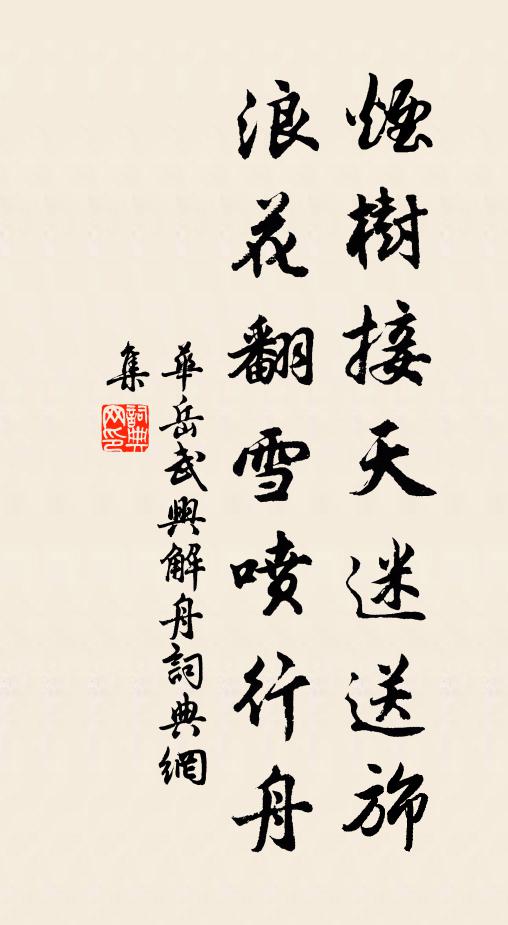 煙樹接天迷送旆
浪花翻雪噴行舟
華岳武興解舟詞典網
集
詞典網印